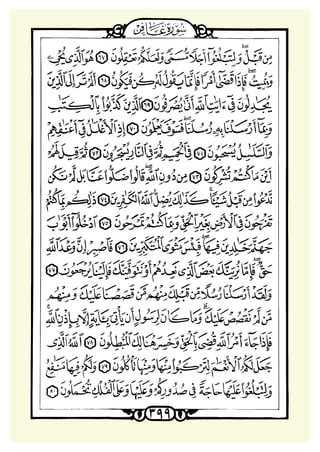 سُورَةُ غَافِر
مِن قَبۡلُۖ وَلِتَبۡلُغُوٓاْ أَجَلٗا مُّسَمّٗى وَلَعَلَّكُمۡ تَعۡقِلُونَ ٦٧ هُوَ ٱلَّذِي يُحۡيِۦ
وَيُمِيتُۖ فَإِذَا قَضَىٰٓ أَمۡرٗا فَإِنَّمَا يَقُولُ لَهُۥ كُن فَيَكُونُ ٦٨ أَلَمۡ تَرَ إِلَى ٱلَّذِينَ
يُجَٰدِلُونَ فِيٓ ءَايَٰتِ ٱللَّهِ أَنَّىٰ يُصۡرَفُونَ ٦٩ ٱلَّذِينَ كَذَّبُواْ بِٱلۡكِتَٰبِ
وَبِمَآ أَرۡسَلۡنَا بِهِۦ رُسُلَنَاۖ فَسَوۡفَ يَعۡلَمُونَ ٧٠ إِذِ ٱلۡأَغۡلَٰلُ فِيٓ أَعۡنَٰقِهِمۡ
وَٱلسَّلَٰسِلُ يُسۡحَبُونَ ٧١ فِي ٱلۡحَمِيمِ ثُمَّ فِي ٱلنَّارِ يُسۡجَرُونَ ٧٢ ثُمَّ قِيلَ لَهُمۡ
أَيۡنَ مَا كُنتُمۡ تُشۡرِكُونَ ٧٣ مِن دُونِ ٱللَّهِۖ قَالُواْ ضَلُّواْ عَنَّا بَل لَّمۡ نَكُن
نَّدۡعُواْ مِن قَبۡلُ شَيۡـٔٗاۚ كَذَٰلِكَ يُضِلُّ ٱللَّهُ ٱلۡكَٰفِرِينَ ٧٤ ذَٰلِكُم بِمَا كُنتُمۡ
تَفۡرَحُونَ فِي ٱلۡأَرۡضِ بِغَيۡرِ ٱلۡحَقِّ وَبِمَا كُنتُمۡ تَمۡرَحُونَ ٧٥ ٱدۡخُلُوٓاْ أَبۡوَٰبَ
جَهَنَّمَ خَٰلِدِينَ فِيهَاۖ فَبِئۡسَ مَثۡوَى ٱلۡمُتَكَبِّرِينَ ٧٦ فَٱصۡبِرۡ إِنَّ وَعۡدَ ٱللَّهِ
حَقّٞۚ فَإِمَّا نُرِيَنَّكَ بَعۡضَ ٱلَّذِي نَعِدُهُمۡ أَوۡ نَتَوَفَّيَنَّكَ فَإِلَيۡنَا يُرۡجَعُونَ ٧٧
وَلَقَدۡ أَرۡسَلۡنَا رُسُلٗا مِّن قَبۡلِكَ مِنۡهُم مَّن قَصَصۡنَا عَلَيۡكَ وَمِنۡهُم
مَّن لَّمۡ نَقۡصُصۡ عَلَيۡكَۗ وَمَا كَانَ لِرَسُولٍ أَن يَأۡتِيَ بِـَٔايَةٍ إِلَّا بِإِذۡنِ ٱللَّهِۚ
فَإِذَا جَآءَ أَمۡرُ ٱللَّهِ قُضِيَ بِٱلۡحَقِّ وَخَسِرَ هُنَالِكَ ٱلۡمُبۡطِلُونَ ٧٨ ٱللَّهُ ٱلَّذِي
جَعَلَ لَكُمُ ٱلۡأَنۡعَٰمَ لِتَرۡكَبُواْ مِنۡهَا وَمِنۡهَا تَأۡكُلُونَ ٧٩ وَلَكُمۡ فِيهَا مَنَٰفِعُ
وَلِتَبۡلُغُواْ عَلَيۡهَا حَاجَةٗ فِي صُدُورِكُمۡ وَعَلَيۡهَا وَعَلَى ٱلۡفُلۡكِ تُحۡمَلُونَ ٨٠
٣٩٩